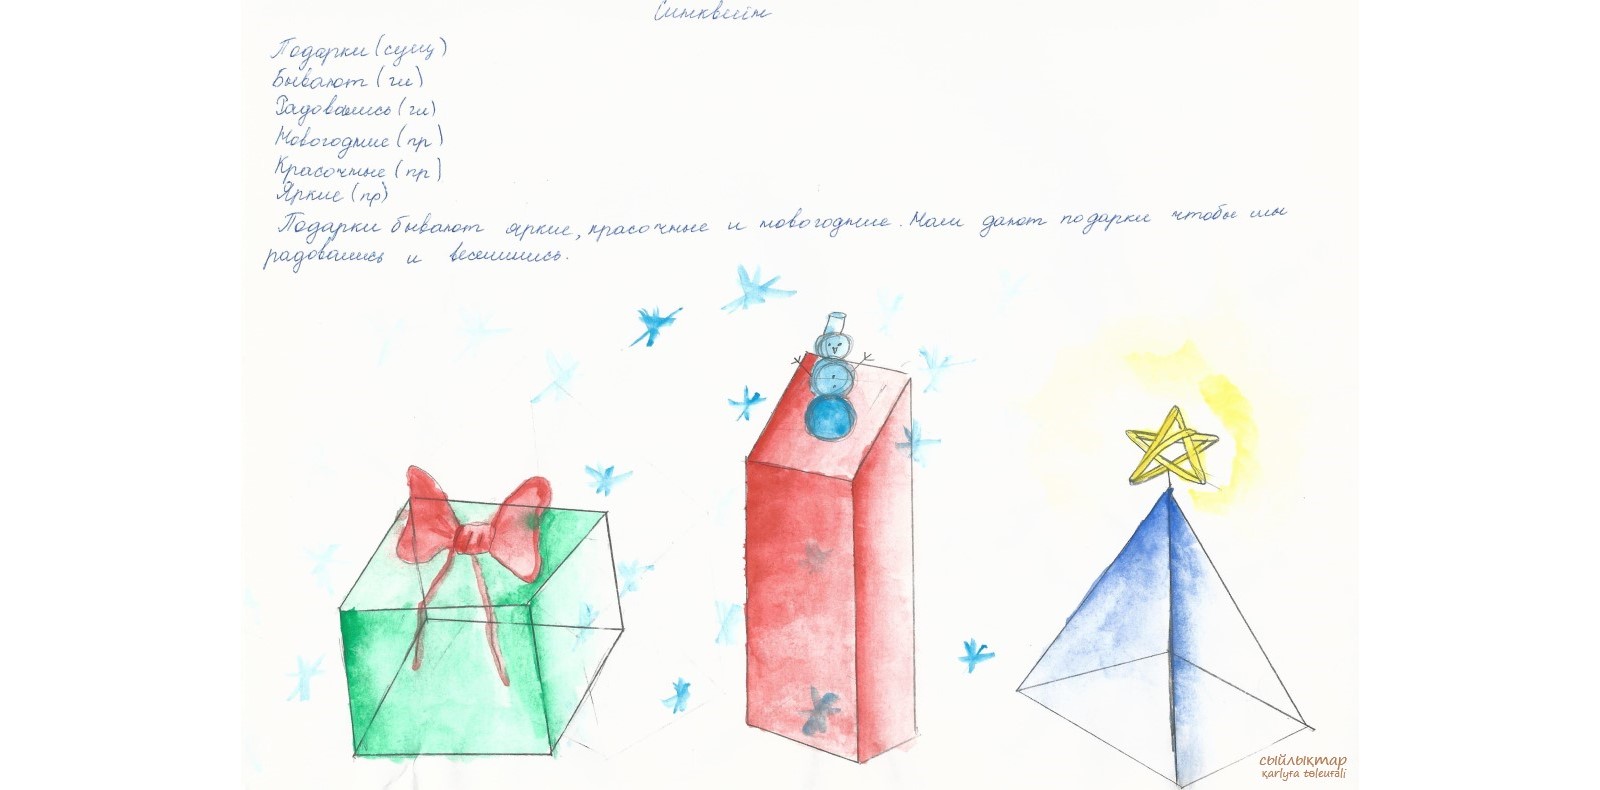 Синквейн
Подарки (сущ)
Бывают (гл)
Радовались (гл)
Новогодние (пр)
Красочные (пр)
Яркие (пр)
Подарки бывают яркие, красочные и новогодние. Нам дают подарки чтобы мы
радовались и веселились.
сыйлықтар
qarlyǵa tóleuǵali